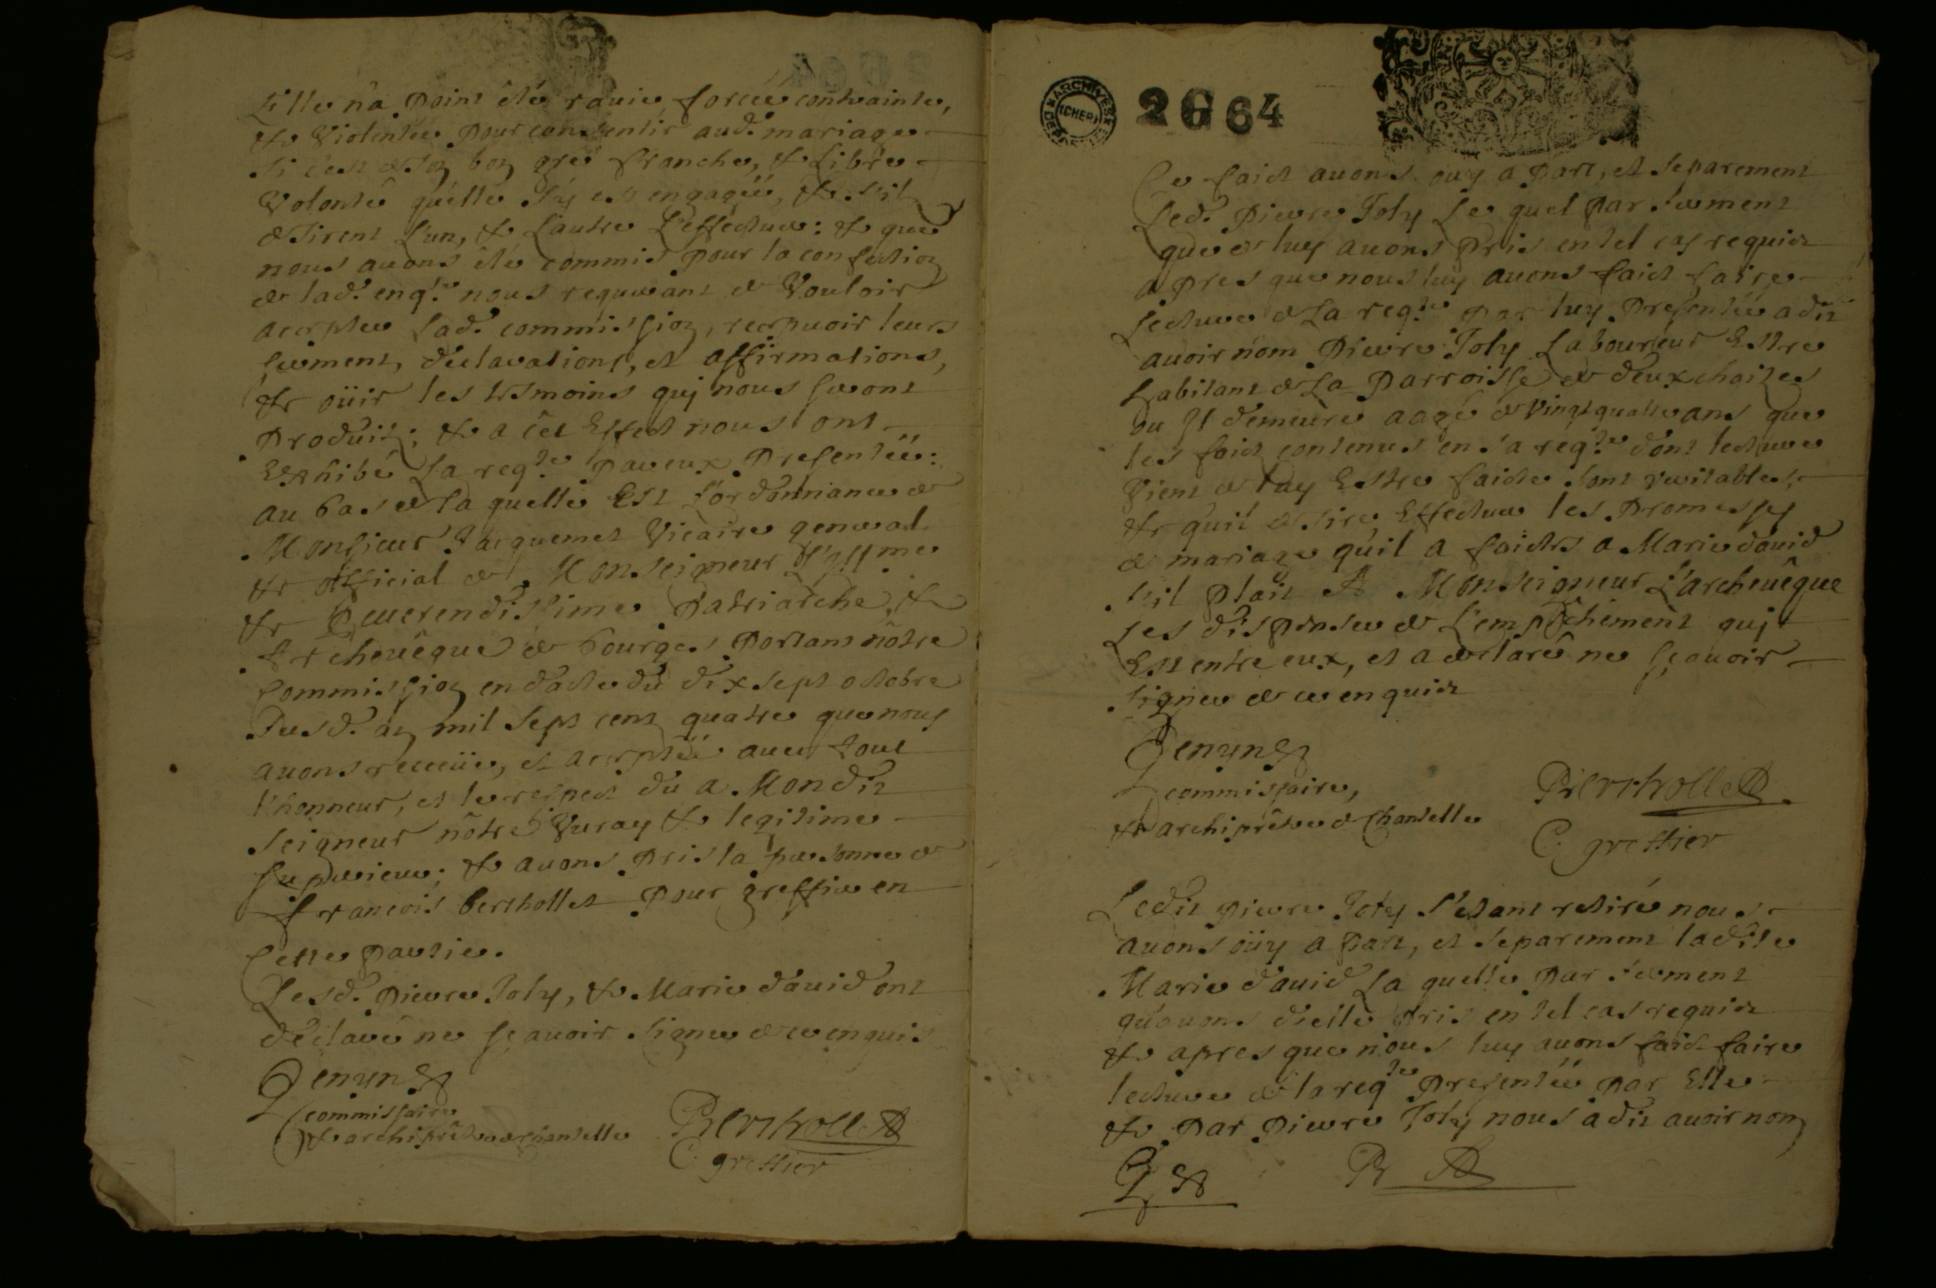 si elle n'a point été ravie forcée contrainte,
et violentée pour consentir aud. mariage
si c'est de son bon gré franche, et libre
volonté qu'elle s'y est engagée, et s'ils
desirent l'un, et l'autre l'effectuer: et que
nous avons été commis pour la confection
de lad. enq.te nous requerant de vouloir
accepter lad. commission, recepvoir leurs
serment, déclarations, et affirmations,
et oüir les tesmoins quj nous seront
produits; et a cet effect nous ont
exhibé la reqte par eux presentée:
au bas de la quelle est l'ordonnance de
Monsieur Jacquemet vicaire general
et official de Monseigneur Jllme
et Reverendissime Patriarche, et
Archevêque de bourges portant nôtre
commission en datte du dix sept octobre
dusd. an mil sept cent quatre que nous
avons receüe, et acceptée avec tout
l'honneur, et le respect dû a Mondit
seigneur nôtre vray et legitime
superieur; et avons pris la personne de
françois berthollet pour greffier en
cette partie.
Lesd. pierre Joly, et Marie david ont
déclaré ne sçavoir signer de ce enquis
commissaire
et archiprêtre de chantelle
Berthollet
C. greffier
ARCHIVES
(CHER)
2 G 64
Ce faict avons ouy a part, et separement
led. pierre Joly le quel par serment
que de luy avons pris en tel cas requis
apres que nous luy avons faict faire
lecture de la reqte par luy presentée a dit
avoir nom pierre Joly laboureur estre
habitant de la parroisse de deux chaises
ou Jl demeure aagé de vingt quatre ans que
les faicts contenus en sa reqte dont lecture
vient de luy estre faicte sont veritables,
et qu'il desire effectuer les promesses
de mariage qu'il a faictes a Marie david
s'il plait A Monseigneur L'archevêque
les dispenser de l'empêchement quj
est entre eux, et a declaré ne sçavoir
signer de ce enquis
commissaire,
et archiprêtre de chantelle
Berthollet
C. greffier
Ledit pierre Joly s'étant retiré nous
avons oüy a part, et separement ladite
Marie david la quelle par serment
qu'avons d'elle pris en tel cas requis
et apres que nous luy avons faict faire
lecture de la reqte presentée par elle
et par pierre Joly nous a dit avoir nom